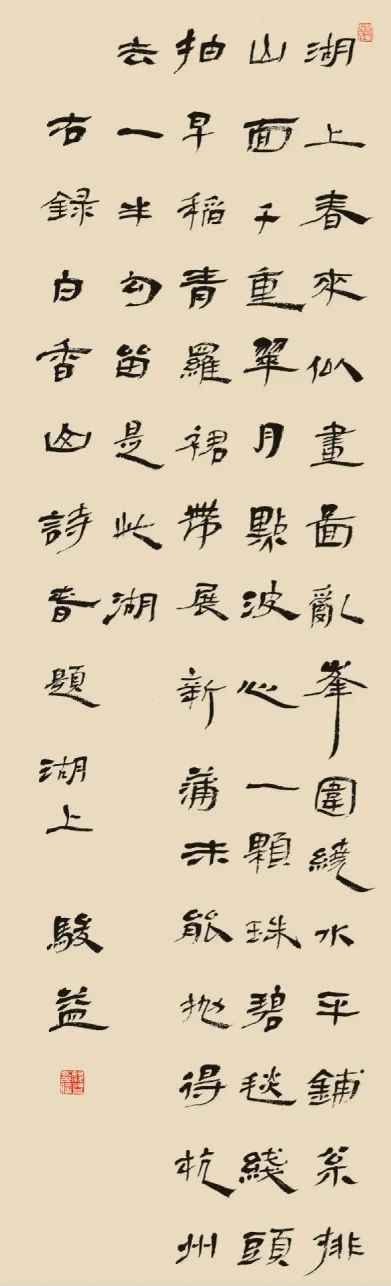 湖上春來似畫圖亂峯圍繞水平鋪枀排
山面千重翠月點波心一顆珠碧毯綫頭
抽早稻青羅裙帶展新蒲未能抛得杭州
去一半勾留是此湖
右録白香山詩春題湖上 駿益